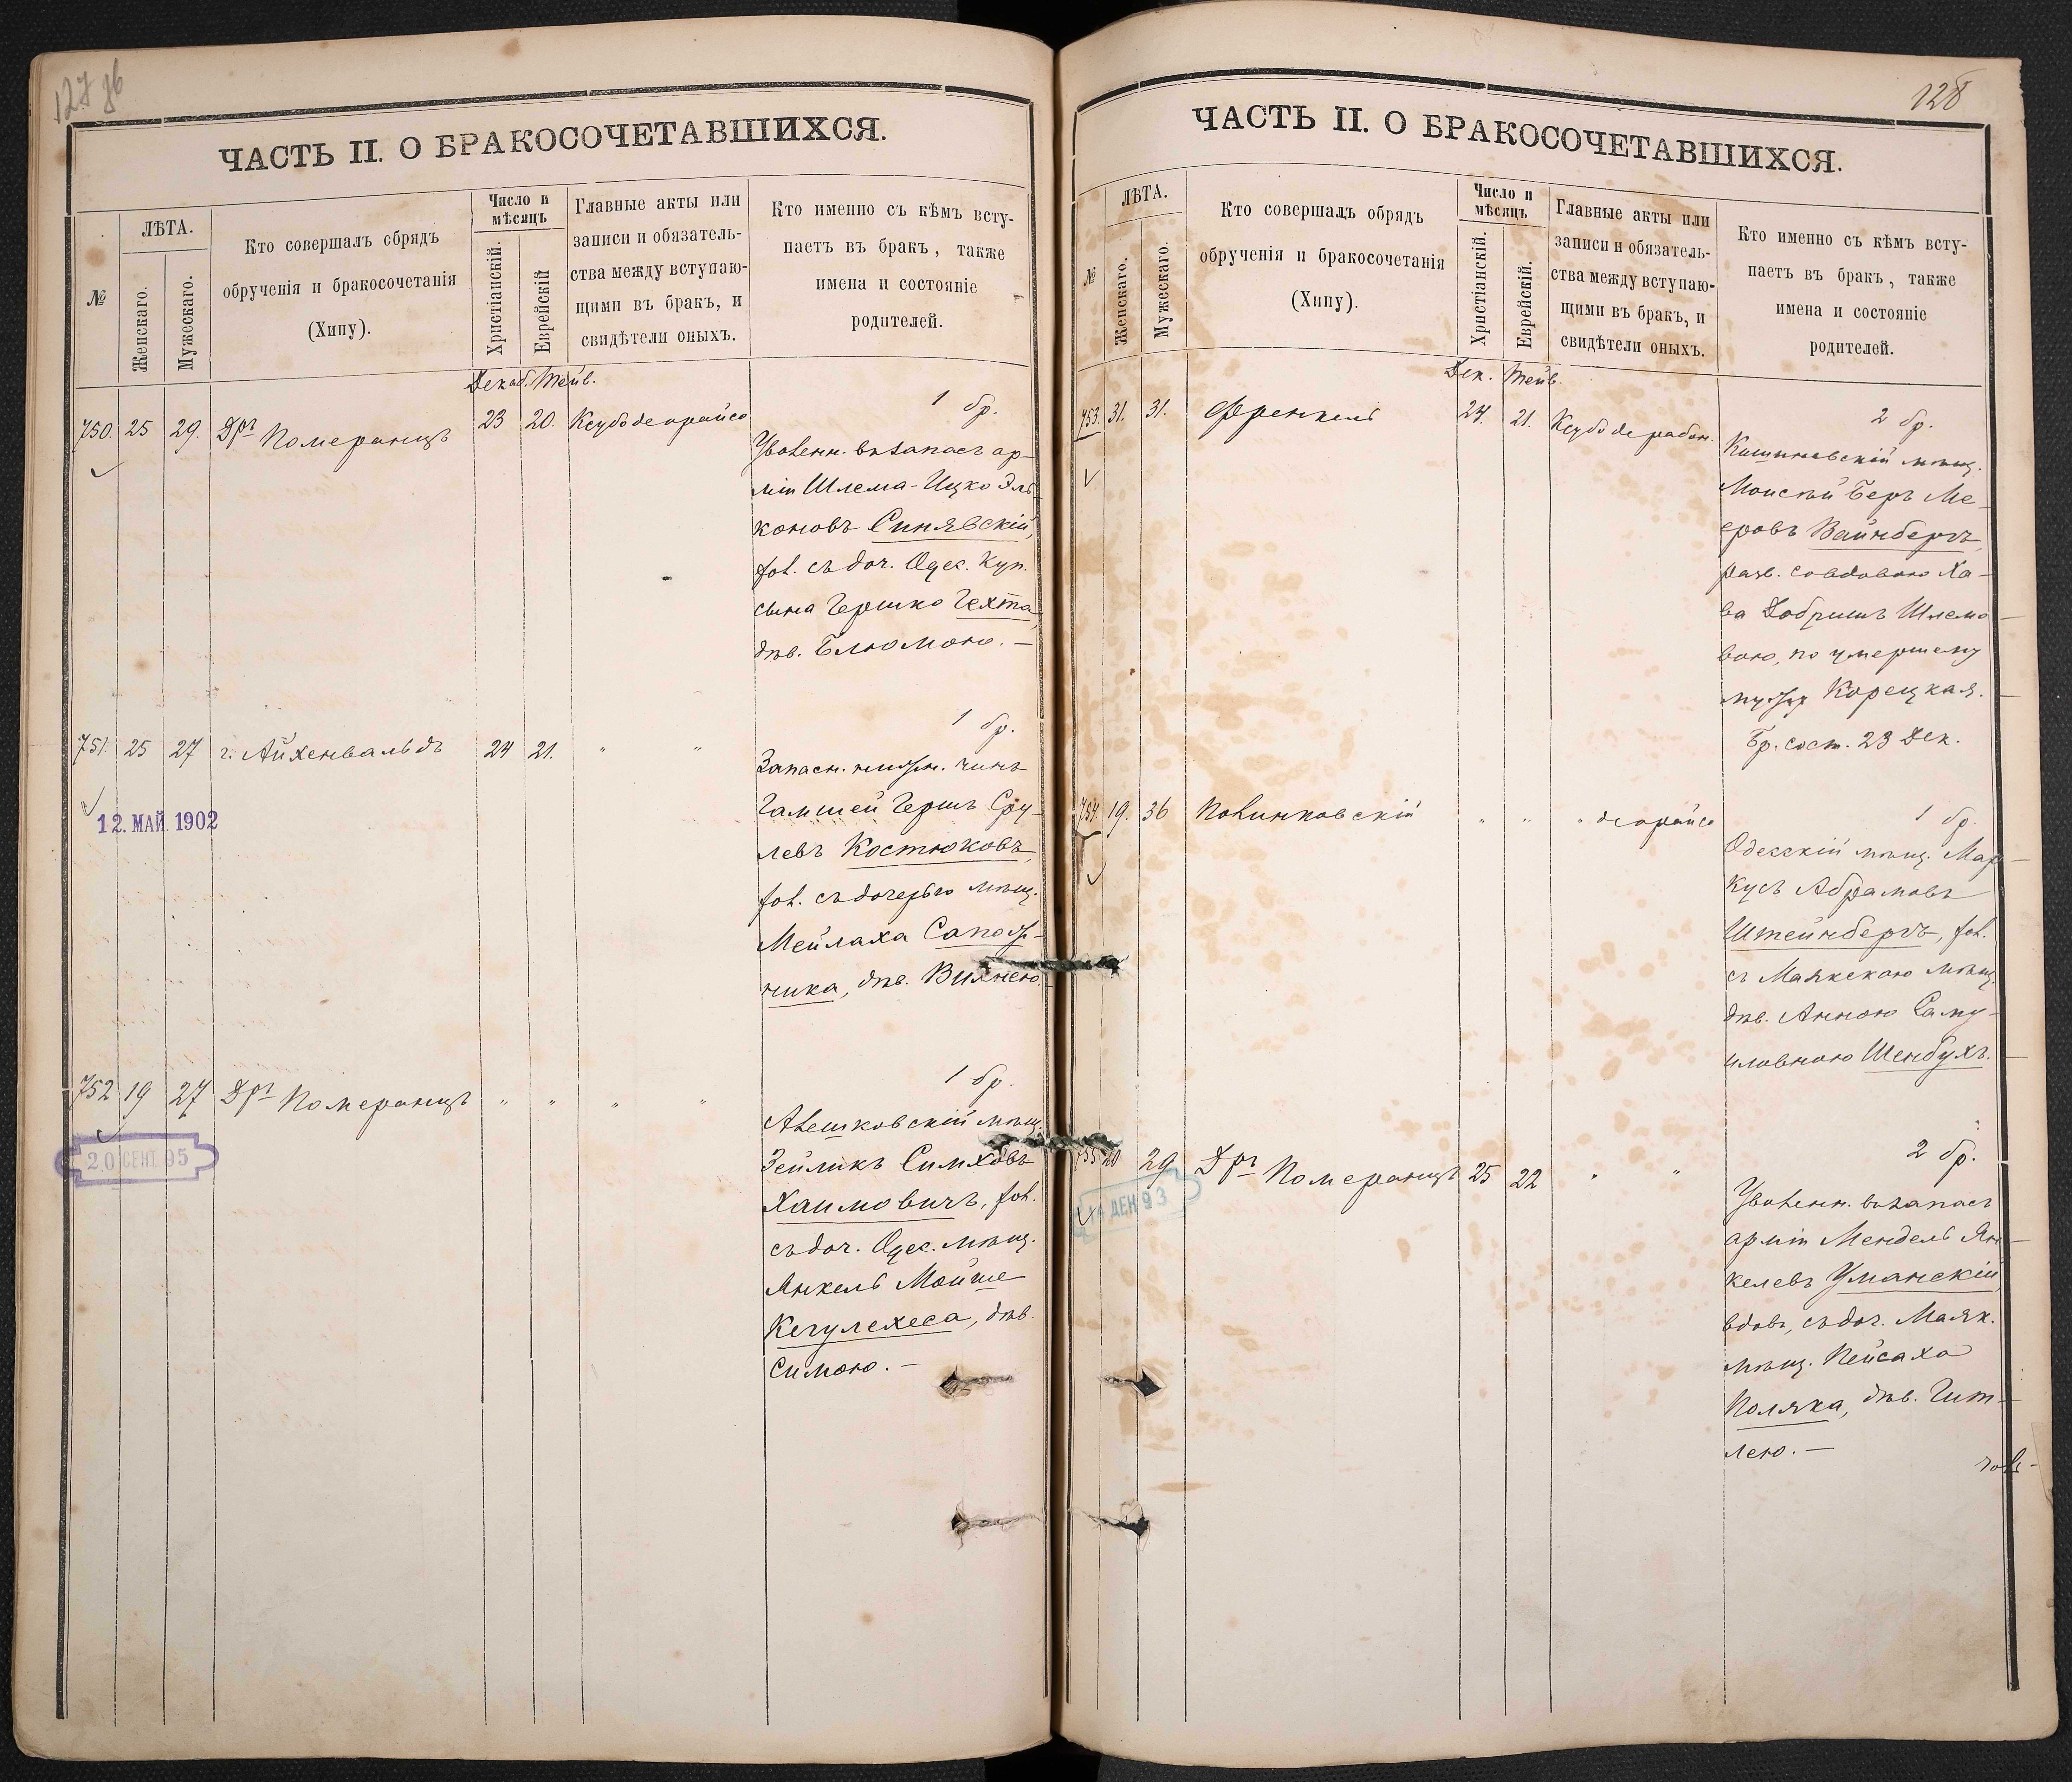 127 об
ЧАСТЬ II. О БРАКОСОЧЕТАВШИХСЯ.
№
ЛѢТА.
Женскаго.
Мужескаго.
Кто совершалъ обрядъ
обрученія и бракосочетанія
(Хипу).
Число и
мѣсяцъ
Христіанскій.
Еврейскій
Главные акты или
записи и обязатель-
ства между вступаю-
щими въ бракъ, и
свидѣтели оныхъ.
Кто именно съ кѣмъ всту-
паетъ въ бракъ, также
имена и состояніе
родителей.
Декаб. Тейв.
750. 25 29. Дръ Померанцъ 23 20. Ксубо деорайсо
1 бр.
Уволенн. въ запасъ ар-
міи Шлема-Ицко Эль-
коновъ Синявскій,
хол. съ доч. Одес. Куп.
сына Гершко Гехта
дѣв. Блюмою. —
751. 25 27 г. Айхенвальдъ 24 21. " "
12. МАЙ 1902
1 бр.
Запасн. нижн. чинъ
Гамшей Гершъ Сру-
левъ Костюковъ,
хол. съ дочерью мѣщ.
Мейлаха Сапож-
ника, дѣв. Вихнею.
752 19 27 Дръ Померанцъ " " " "
20 СЕНТ. 95
1 бр.
Алешковскій мѣщ.
Зейликъ Симховъ
Хаимовичъ, хол.
съ доч. Одес. мѣщ.
Янкель Мойше
Кегулехеса, дѣв.
Симою. —
128
ЧАСТЬ II. О БРАКОСОЧЕТАВШИХСЯ.
№
ЛѢТА.
Женскаго.
Мужескаго.
Кто совершалъ обрядъ
обрученія и бракосочетанія
(Хипу).
Число и
мѣсяцъ
Христіанскій.
Еврейскій.
Главные акты или
записи и обязатель-
ства между вступаю-
щими въ бракъ, и
свидѣтели оныхъ.
Кто именно съ кѣмъ всту-
паетъ въ бракъ, также
имена и состояніе
родителей.
Дек. Тейв.
753. 31. 31. Френкель 24. 21. Ксубо де рабон.
2 бр.
Кишиневскій мѣщ.
Моисѣй Беръ Ме-
еровъ Вайнбергъ,
разв. со вдовою Ха-
ва Добришъ Шлемо-
вою, по умершему
мужу Корецкая.
Бр. сост. 23 Дек.
754. 19. 36 Полинковскій " " " деорайсо
1 бр.
Одесскій мѣщ. Мар-
кусъ Абрамовъ
Штейнбергъ, хол.
съ Маякскою мѣщ.
дѣв. Анною Саму-
иловною Шенбухъ.
755. 20 29 Дръ Померанцъ 25 22 " "
14 ДЕК 93
2 бр.
Уволенн. въ запасъ
арміи Мендель Ян-
келевъ Уманскій,
вдовъ, съ доч. Маяк.
мѣщ. Пейсаха
Поляка, дѣв. Гит-
лею. —